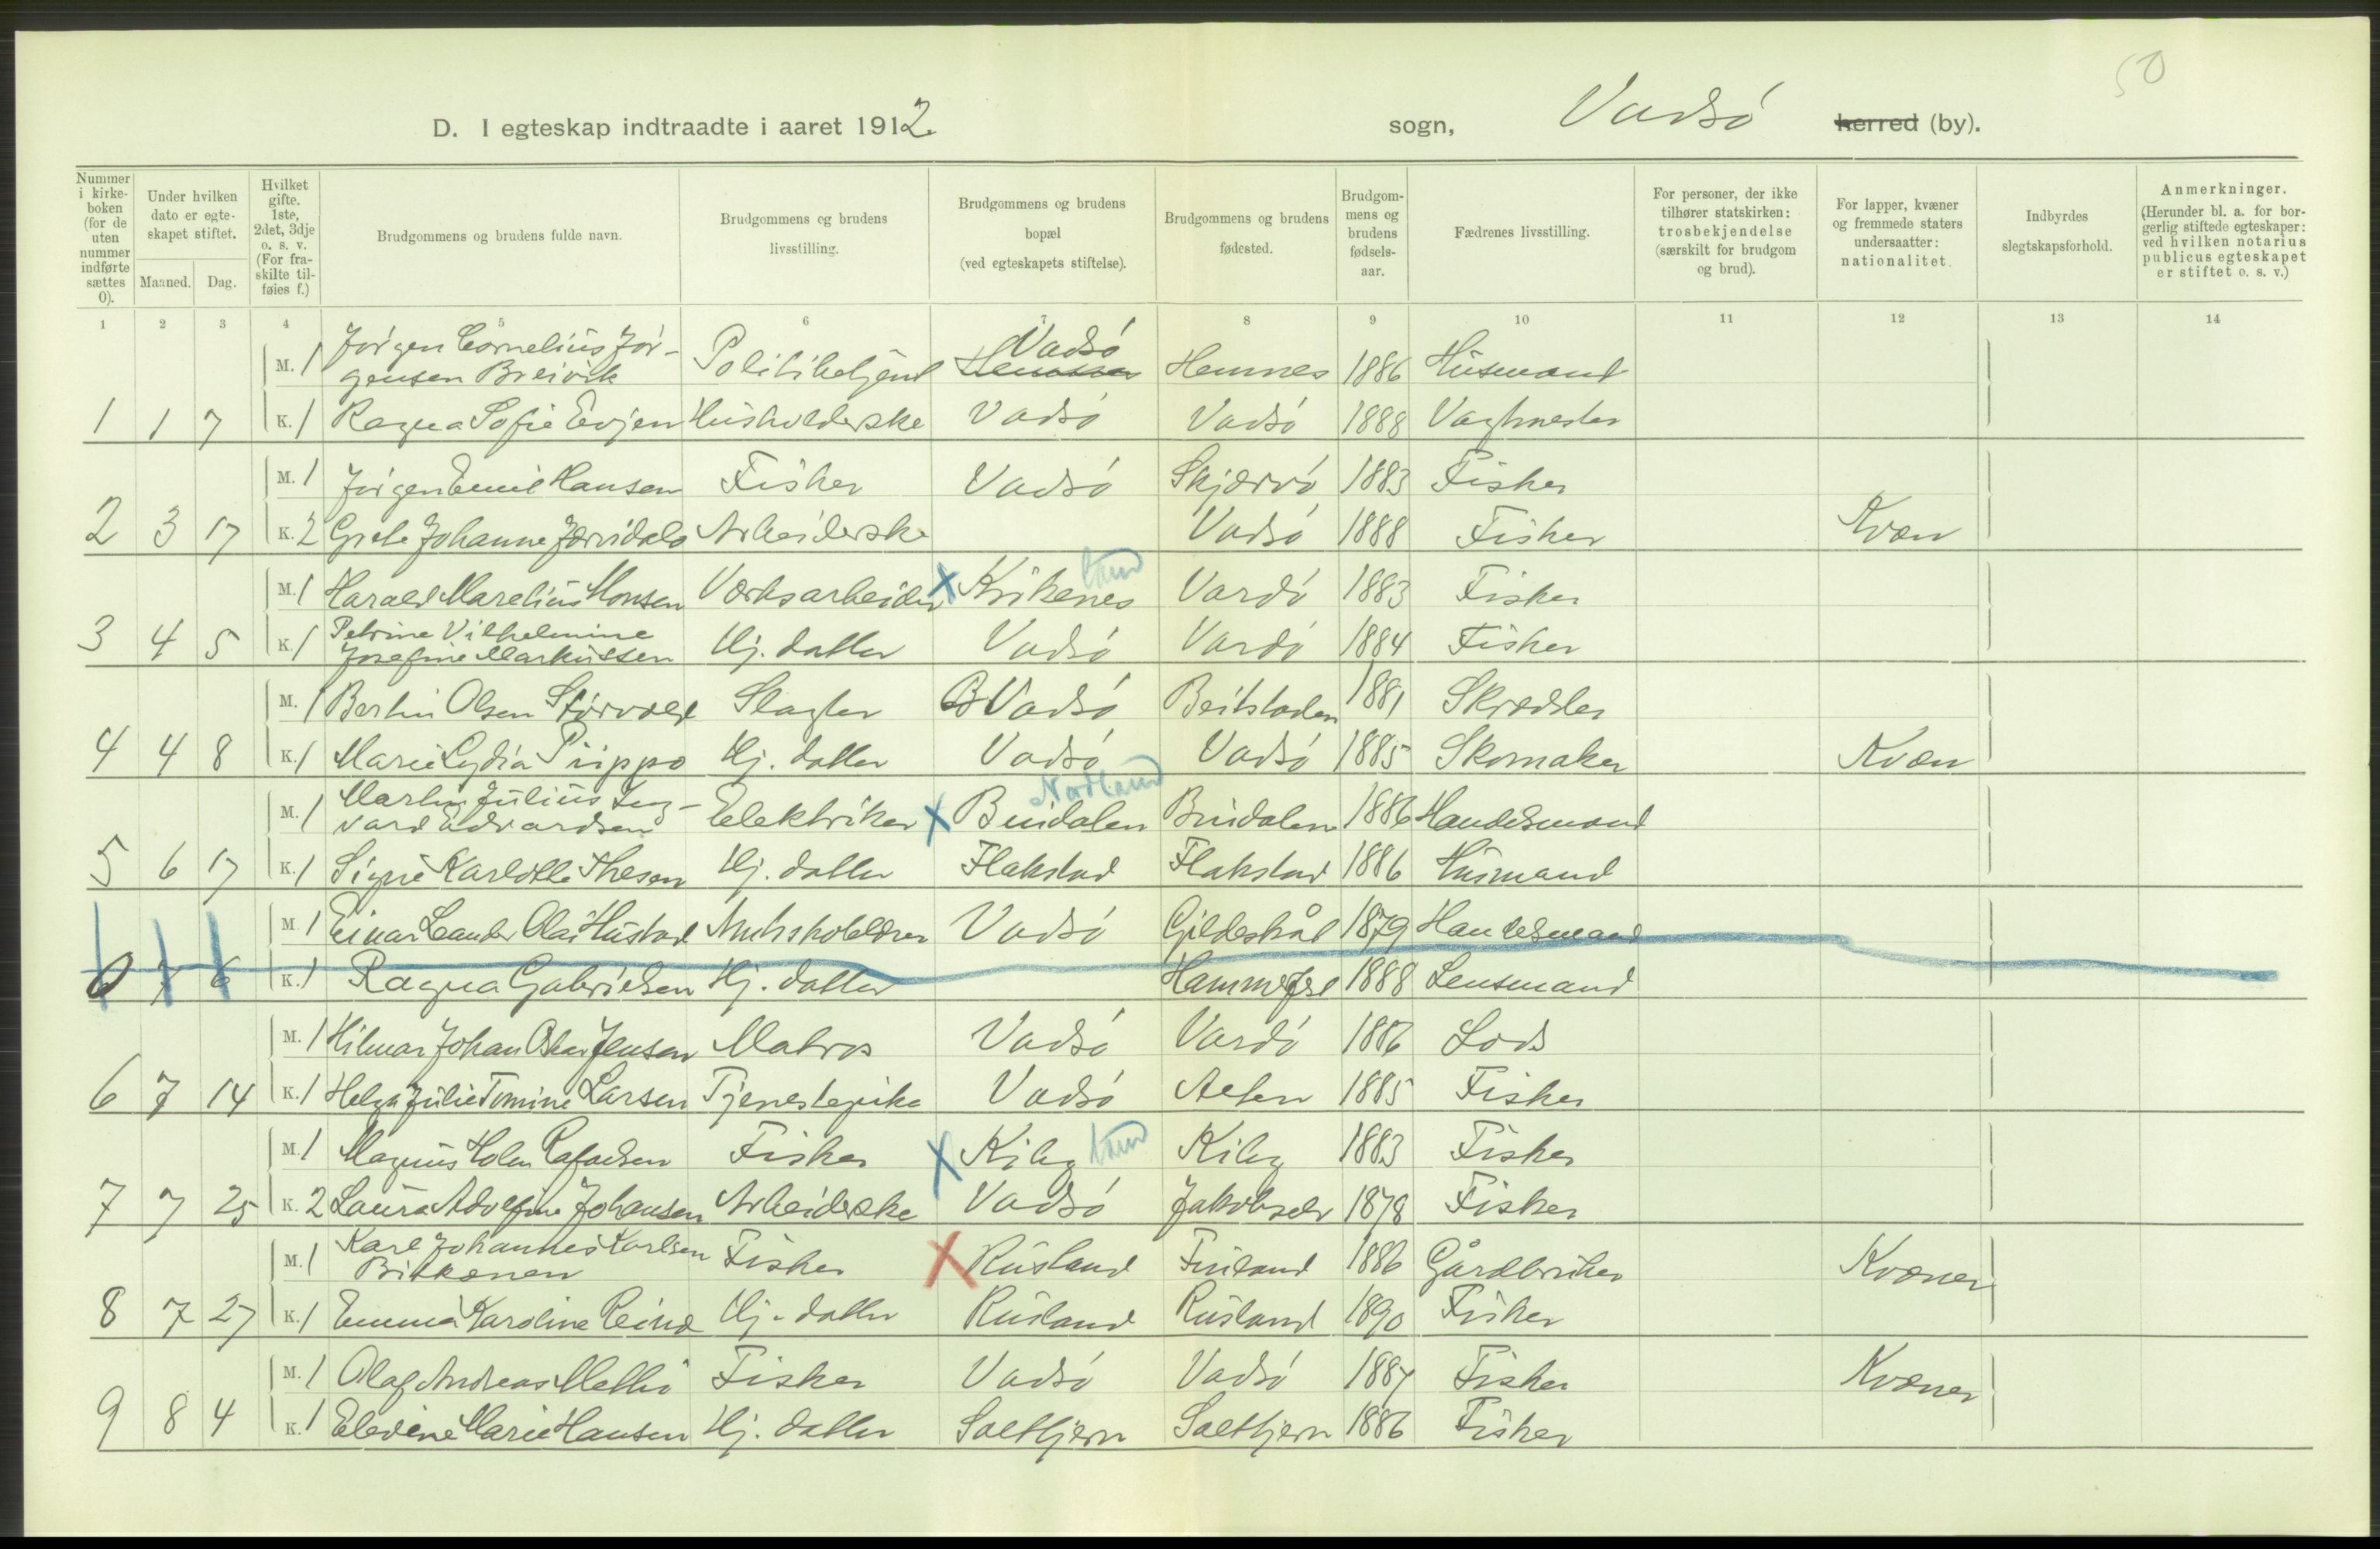 50
D. I egteskap indtraadte i aaret 1912. sogn, Vadsö herred (by).
Nummer i kirke- boken (for de uten nummer indførte sættes 0).
Under hvilken dato er egte- skapet stiftet.
Maaned. Dag.
Hvilket gifte. 1ste, 2det, 3dje o. s. v. (For fra- skilte til- føies f.)
Brudgommens og brudens fulde navn.
Brudgommens og brudens livsstilling.
Brudgommens og brudens bopæl (ved egteskapets stiftelse).
Brudgommens og brudens fødested.
Brudgom- mens og brudens fødsels- aar.
Fædrenes livsstilling.
For personer, der ikke tilhører statskirken: trosbekjendelse (særskilt for brudgom og brud).
For lapper, kvæner og fremmede staters undersaatter: nationalitet.
Indbyrdes slegtskapsforhold.
Anmerkninger. (Herunder bl. a. for bor- gerlig stiftede egteskaper: ved hvilken notarius publicus egteskapet er stiftet o. s. v.)
1 2 3 4 5 6 7 8 9 10 11 12 13 14
M. 1 Jörgen Cornelius Jör- Vadsö
gensen Breivik Politibetjent Hemnes 1886 Husmand
1 1 7 K. 1 Ragna Sofie Evjen Husholderske Vadsö Vadsö 1888 Vagtmester
M. 1 Jörgen Emil Hansen Fisker Vadsö Skjærvö 1883 Fisker
2 3 17 K. 2 Grete Johanne Arbeiderske Vadsö 1888 Fisher Kvæn
M. 1 Harald Marelius Monsen Værksarbeider X Kirkenes 1883 Vardö Fisker
3 4 5 K. 1 Petrine Vilhelmine
Josefine Markussen Hj. datter Vadsö Vardö 1884 Fisker
M. 1 Bertin Olsen Slagter Vadsö Beitstaden 1881 Skrædder
4 4 8 K. 1 Marie Lydia Piippo Hj. datter Vadsö Vadsö 1885 Skomaker Kvæn
Nordland
M. 1 Martin Julius Ing-
vard Edvardsen Elektriker X Bindalen Bindalen 1886 Handelsmand
5 6 17 K. 1 Signe Karlotte Thesen Hj. datter Flakstad Flakstad 1886 Husmand
M. 1 Einar Leander Olai Hustad Amtsskolelærer Vadsö Gildeskål 1879 Handelsmand
6 7 6 K. 1 Ragna Gabrielsen Hj. datter Hammerfest 1888 Lensmand
M. 1 Hilmar Johan Oskar Jensen Matros Vadsö Vardö 1886 Lods
6 7 14 K. 1 Helga Julie Tomine Larsen Tjenestepike Vadsö Alten 1885 Fisker
M. 1 Magnus Holm Rafaelsen Fisker X Kiby Kiby 1883 Fisker
7 7 25 K. 2 Laura Adolfine Johansen Arbeiderske Vadsö Jakobselv 1878 Fisker
M. 1 Karl Johannes Karlsen
Fisker X Rusland Finland 1886 Gårdbruker Kvæner
8 7 27 K. 1 Emma Karoline Hj. datter Rusland Rusland 1890 Fisker
M. 1 Olaf Andreas Fisker Vadsö Vadsö 1887 Fisker Kvæner
9 8 4 K. 1 Eledine Marie Hansen Hj. datter Salthjern Saltjern 1886 Fisker